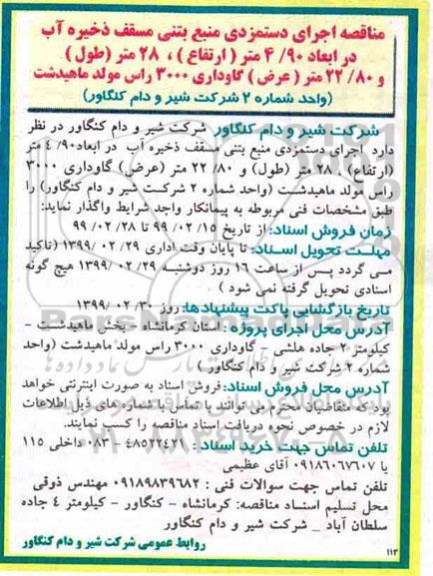 مناقصه اجرای دستمزدی منبع بتنی مسقف ذخیره آب
در ابعاد ۴/۹۰ متر ( ارتفاع ) ، ۲۸ متر (طول )
و ۲۲/۸۰ متر ( عرض ) گاوداری ۳۰۰۰ راس مولد ماهیدشت
(واحد شماره ۲ شرکت شیر و دام کنگاور)
شرکت شیر و دام کنگاور شرکت شیر و دام کنگاور در نظر
دارد اجرای دستمزدی منبع بتنی مسقف ذخیره آب در ابعاد ۴/۹۰ متر
(ارتفاع) ، ۲۸ متر (طول) و ۲۲/۸۰ متر (عرض) گاوداری ۳۰۰۰
راس مولد ماهیدشت (واحد شماره ۲ شرکت شیر و دام کنگاور) را
طبق مشخصات فنی مربوطه به پیمانکار واجد شرایط واگذار نماید:
زمان فروش اسناد: از تاریخ ۹۹/۰۲/۱۵ تا ۹۹/۰۲/۲۸
مهلت تحویل اسناد: تا پایان وقت اداری ۱۳۹۹/۰۲/۲۹ (تاکید
می گردد پس از ساعت ۱۶ روز دوشنبه ۱۳۹۹/۰۲/۲۹ هیچ گونه
اسنادی تحویل گرفته نمی شود )
تاریخ بازگشایی پاکت پیشنهادها: روز ۱۳۹۹/۰۲/۳۰
آدرس محل اجرای پروژه : استان کرمانشاه - بخش ماهیدشت -
کیلومتر ۲ جاده هلشی - گاوداری ۳۰۰۰ راس مولد ماهیدشت (واحد
شماره ۲ شرکت شیر و دام کنگاور)
آدرس محل فروش اسناد: فروش اسناد به صورت اینترنتی خواهد
بود که متقاضیان محترم می توانند با تماس با شماره های ذیل اطلاعات
لازم در خصوص نحوه دریافت اسناد مناقصه را کسب نمایند.
تلفن تماس جهت خرید اسناد : ۴۸۵۲۲۴۲۱ - ۰۸۳ داخلی ۱۱۵
یا ۰۹۱۸۶۰۶۷۶۰۷ آقای عظیمی
تلفن تماس جهت سوالات فنی : ۰۹۱۸۹۸۳۹۶۸۲ مهندس ذوقی
محل تسلیم اسناد مناقصه: کرمانشاه - کنگاور - کیلومتر ۴ جاده
سلطان آباد _ شرکت شیر و دام کنگاور
روابط عمومی شرکت شیر و دام کنگاور
۱۱۳